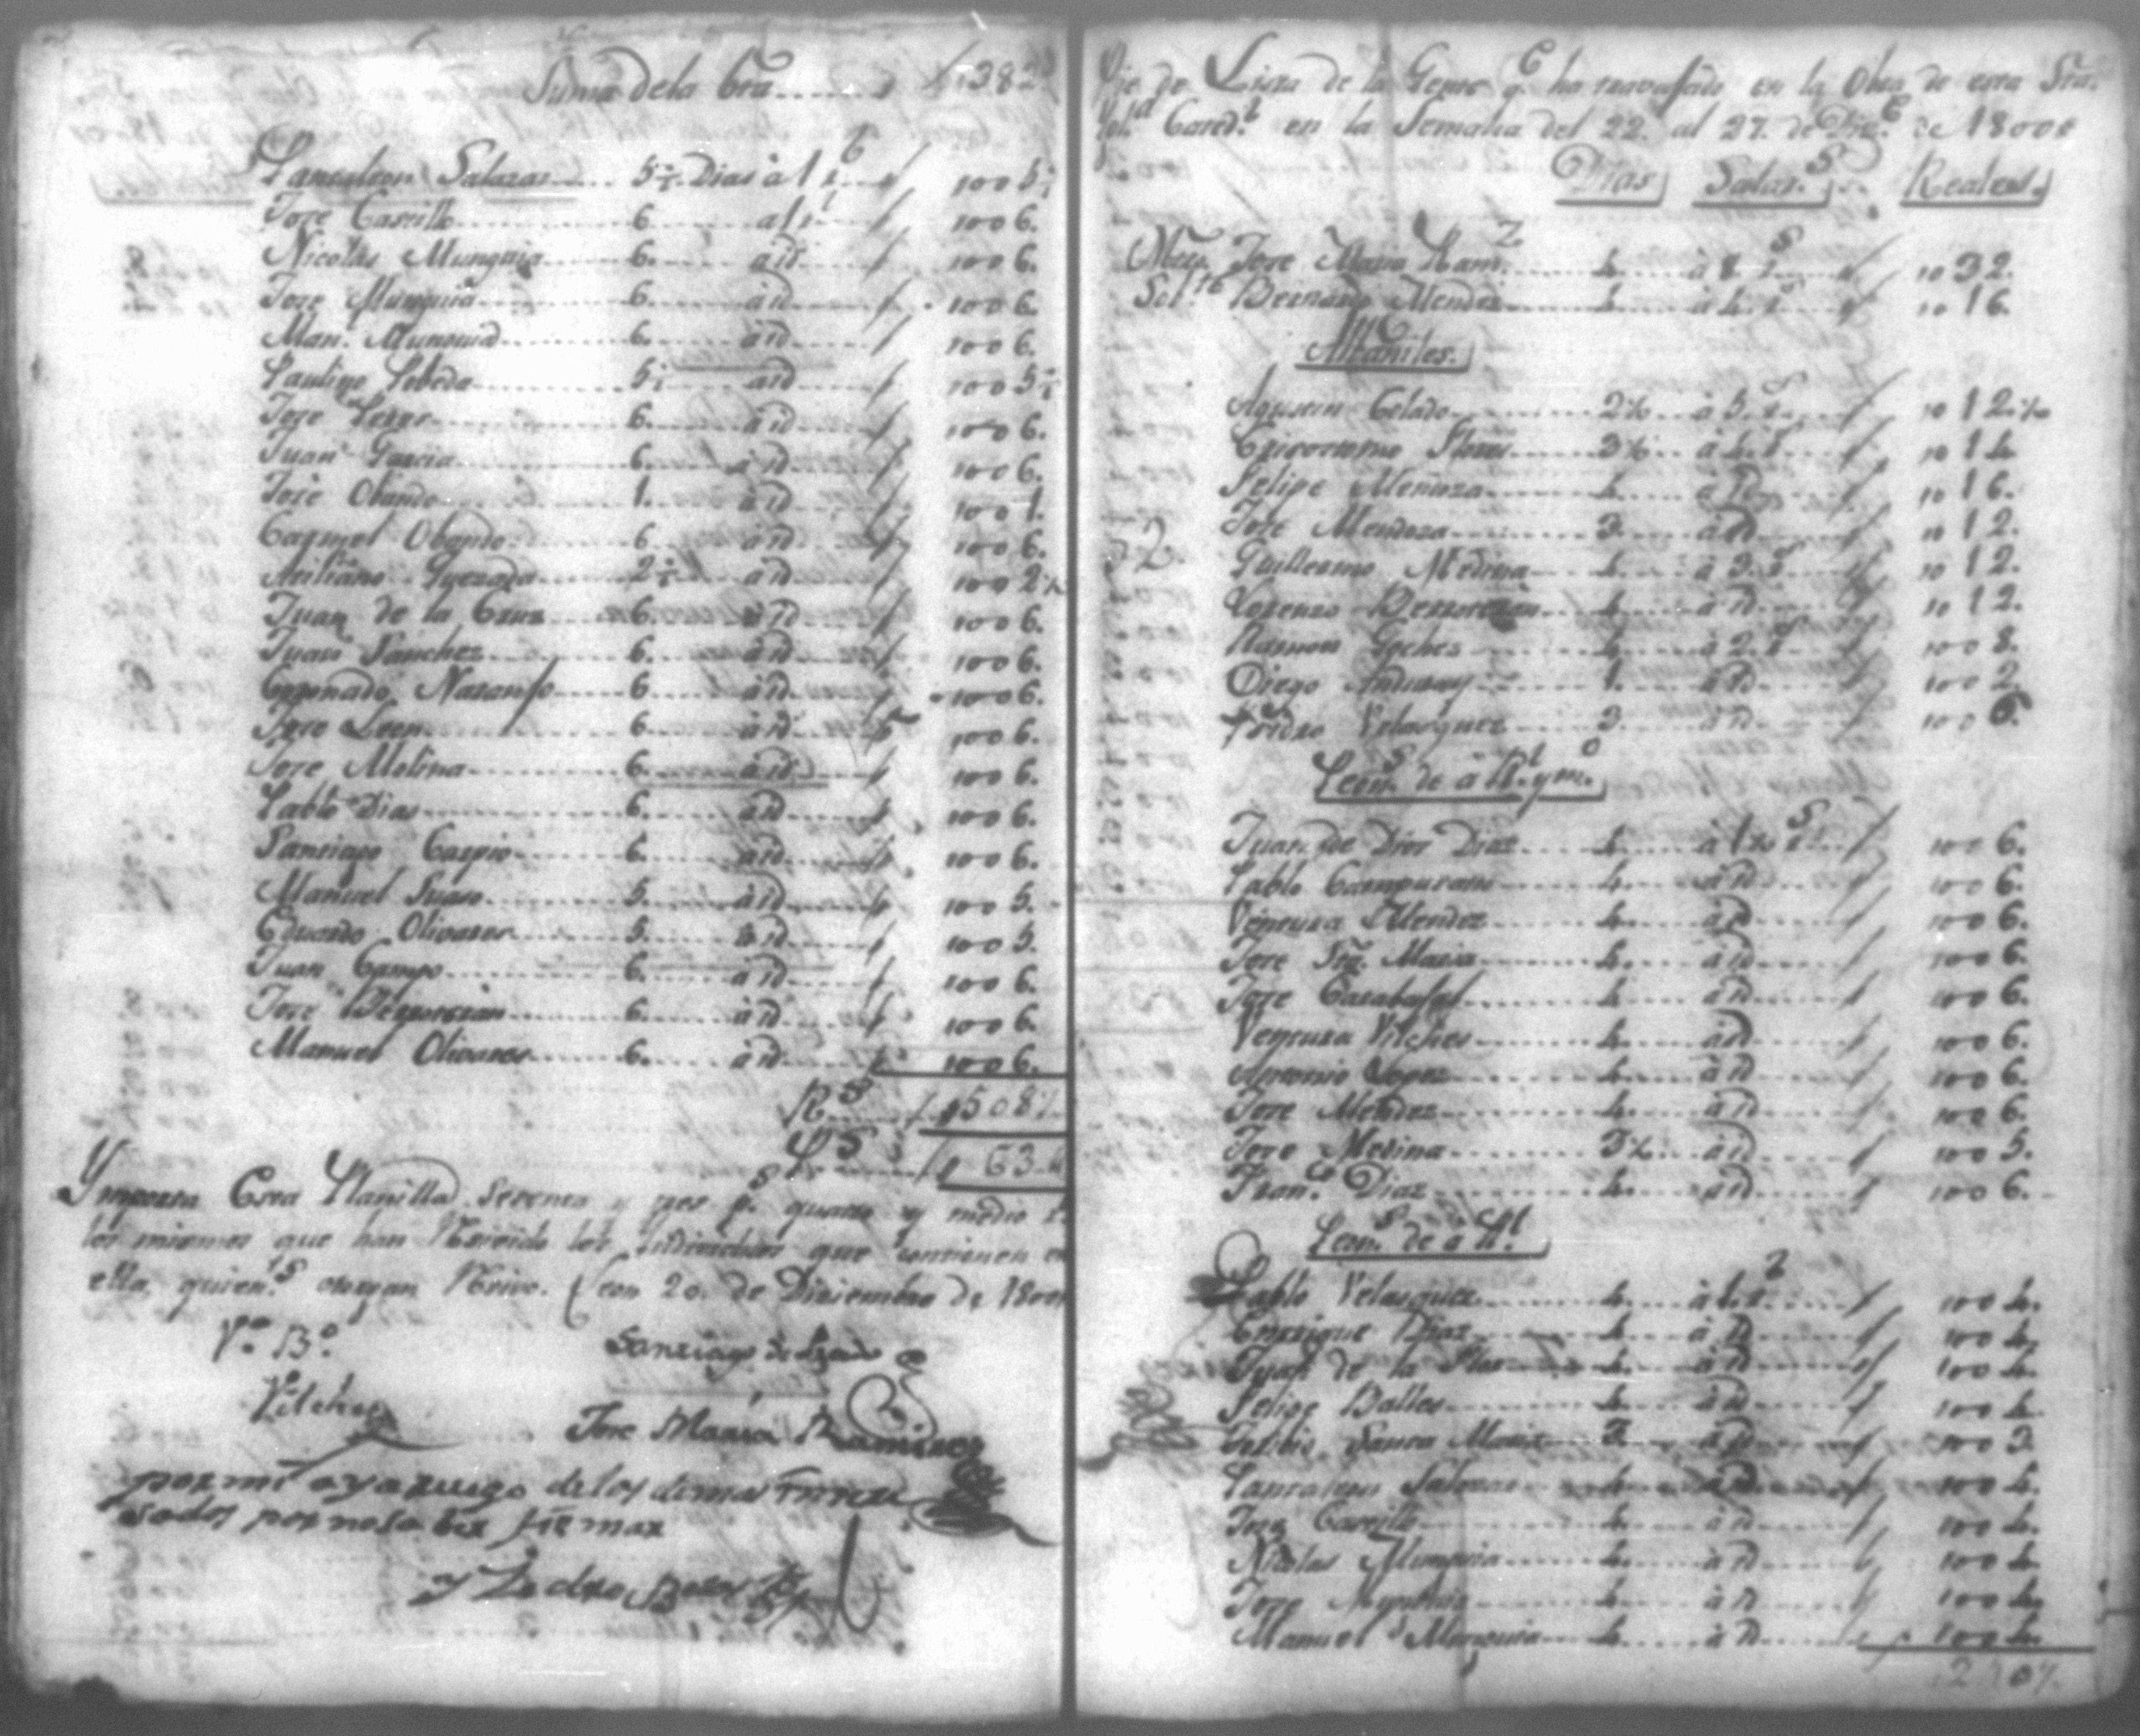 Suma dela bta........ 382
Pantaleon Salazar.... 5½ Dias à 1 r. 5½
Jose Castillo........ 6. a 1 r. 006.
Nicolas Munguia...... 6. àid 006.
Jose Munguia........ 6. àid 006.
Man.l Munguia........ 6. àid 006.
Paulino Poveda........ 5½ àid 005½
Jose Perez........ 6. àid 006.
Juan Garcia........ 6. àid 006.
Jose Obando........ 1. àid 001.
Obando........ 6. àid 006.
Quezada........ 2½ àid 002½
Juan de la Cruz........ 6. àid 006.
Juan Sanchez........ 6. àid 006.
Coronado Naranjo........ 6. àid 006.
Jose Leon........ 6. àid 006.
Jose Molina........ 6. àid 006.
Pablo Dias........ 6. àid 006.
Santiago Carpio........ 6. àid 006.
Manuel Suaso........ 5. àid 005.
Eduardo Olivares........ 5. àid 005.
Juan Campo........ 6. àid 006.
Jose Berroteran........ 6. àid 006.
Manuel Olivares........ 6. àid 006.
R.s 508½
P.s 63
Ymporta Esta Planilla sesenta y tres p.s quatro y medio r.
los mismos que han Resivido los Yndividuos que contienen en
ella, quien.s otorgan Resivo. Leon 20. de Diciembre de 1800
V.o B.o
Santiago de
Vilches
Jose Maria Ramirez
por mi y a ruego delos demas Yntere
sados por no saber firmar
y Pedro
Lista de la Gente q.e ha travajado en la Obra de esta Sta.
Ygl.a Cated.l en la Semana del 22. al 27. de Diz.e de 1800
Dias Salar.s Reales.
Mtro. Jose Maria Ram.z 4. à 8 r.s 032.
Sol.te Bernardo Mendez 4. à 4 r.s 016.
Albañiles.
Agustin Celado........ 2½ à 5 r.s 012½
Crisostomo Flores........ 3½ à 4 r.s 014
Felipe Mendoza........ 4. àid 016.
Jose Mendoza........ 3. àid 012.
Guillermo Medina........ 4. à 3 r.s 012.
Lorenzo Berroteran........ 4. àid 012.
Ramon Gochez........ 4. à 2 r.s 008.
Diego........ 1. àid 002
Ysidro Velasquez........ 3. àid 006.
Peon.s de à R.l y m.o
Juan de Dios Diaz........ 4. à 1½ r.s 006.
Pablo Campusano........ 4. àid 006.
Ventura Mendez........ 4. àid 006.
Jose Maria........ 4. àid 006.
Jose Carabajal........ 4. àid 006.
Ventura Vilches........ 4. àid 006.
Antonio Lopez........ 4. àid 006.
Jose Mendez........ 4. àid 006.
Jose Medina........ 3½ àid 005.
Fran.co Diaz........ 4. àid 006.
Peon.s de à R.l
Pablo Velasquez........ 4. à 1 r. 004.
Enrrique Diaz........ 4. àid 004.
Juan de la........ 4. àid 004.
Felipe Balles........ 4. àid 004.
Santa Maria........ 3. àid 003.
Pantaleon Salazar........ 4. àid 004.
Jose Castillo........ 4. àid 004.
Nicolas Munguia........ 4. àid 004.
Jose Munguia........ 4. àid 004.
Manuel Munguia........ 4. àid 004.